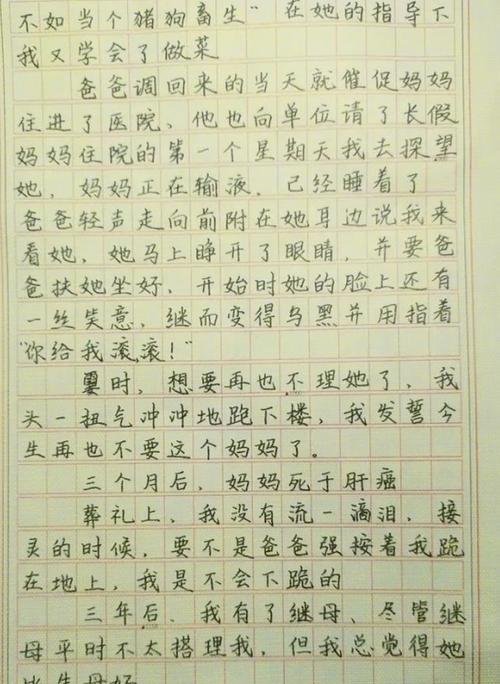 不如当个猪狗畜生"在她的指导下
我又学会了做菜
爸爸调回来的当天就催促妈妈
住进了医院、他也向单位请了长假
妈妈住院的第一个星期天我去探望
她,妈妈正在输液,已经睡着了
爸爸轻声走向前附在她耳边说我来
看她,她马上睁开了眼睛,并要爸
爸扶她坐好,开始时她的脸上还有
一丝笑意,继而变得乌黑并用指着
"你给我滚,滚!"
时,想要再也不理她了,我
头一扭气冲冲地跑下楼,我发誓今
生再也不要这个妈妈了。
三个月后,妈妈死于肝癌
葬礼上、我没有流一滴泪,接
灵的时候,要不是爸爸强按着我跪
在地上,我是不会下跪的
三年后、我有了继母、尽管继
母平时不太搭理我,但我总觉得她
比生母好